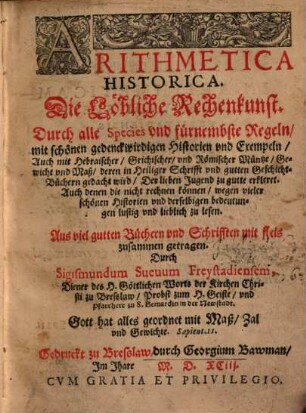 ARITHMETICA
HISTORICA.
Die Löbliche Rechenkunst.
Durch alle Species vnd fürnembste Regeln/
mit schönen gedenckwirdigen Historien vnd Exempeln/
Auch mit Hebraischer/ Grichischer/ vnd Römischer Müntze/ Ge-
wicht vnd Maß/ deren in Heiliger Schrifft vnd gutten Geschicht-
Büchern gedacht wird/ Der lieben Jugend zu gutte erkleret.
Auch denen die nicht rechnen können/ wegen vieler
schönen Historien vnd derselbigen bedeutun-
gen lustig vnd lieblich zu lesen.
Aus viel gutten Büchern vnd Schrifften mit fleis
zusammen getragen.
Durch
Sigismundum Sueuum Freystadiensem,
Diener des H. Göttlichen Worts der Kirchen Chri-
sti zu Breslaw/ Probst zum H. Geiste/ vnd
Pfarrherr zu S. Bernardin in der Newstadt.
Gott hat alles geordnet mit Maß/ Zal
vnd Gewichte. Sapient. 11.
Gedruckt zu Breslaw/ durch Georgium Bawman/
Im Jhare M. D. XCIII.
CVM GRATIA ET PRIVILEGIO.